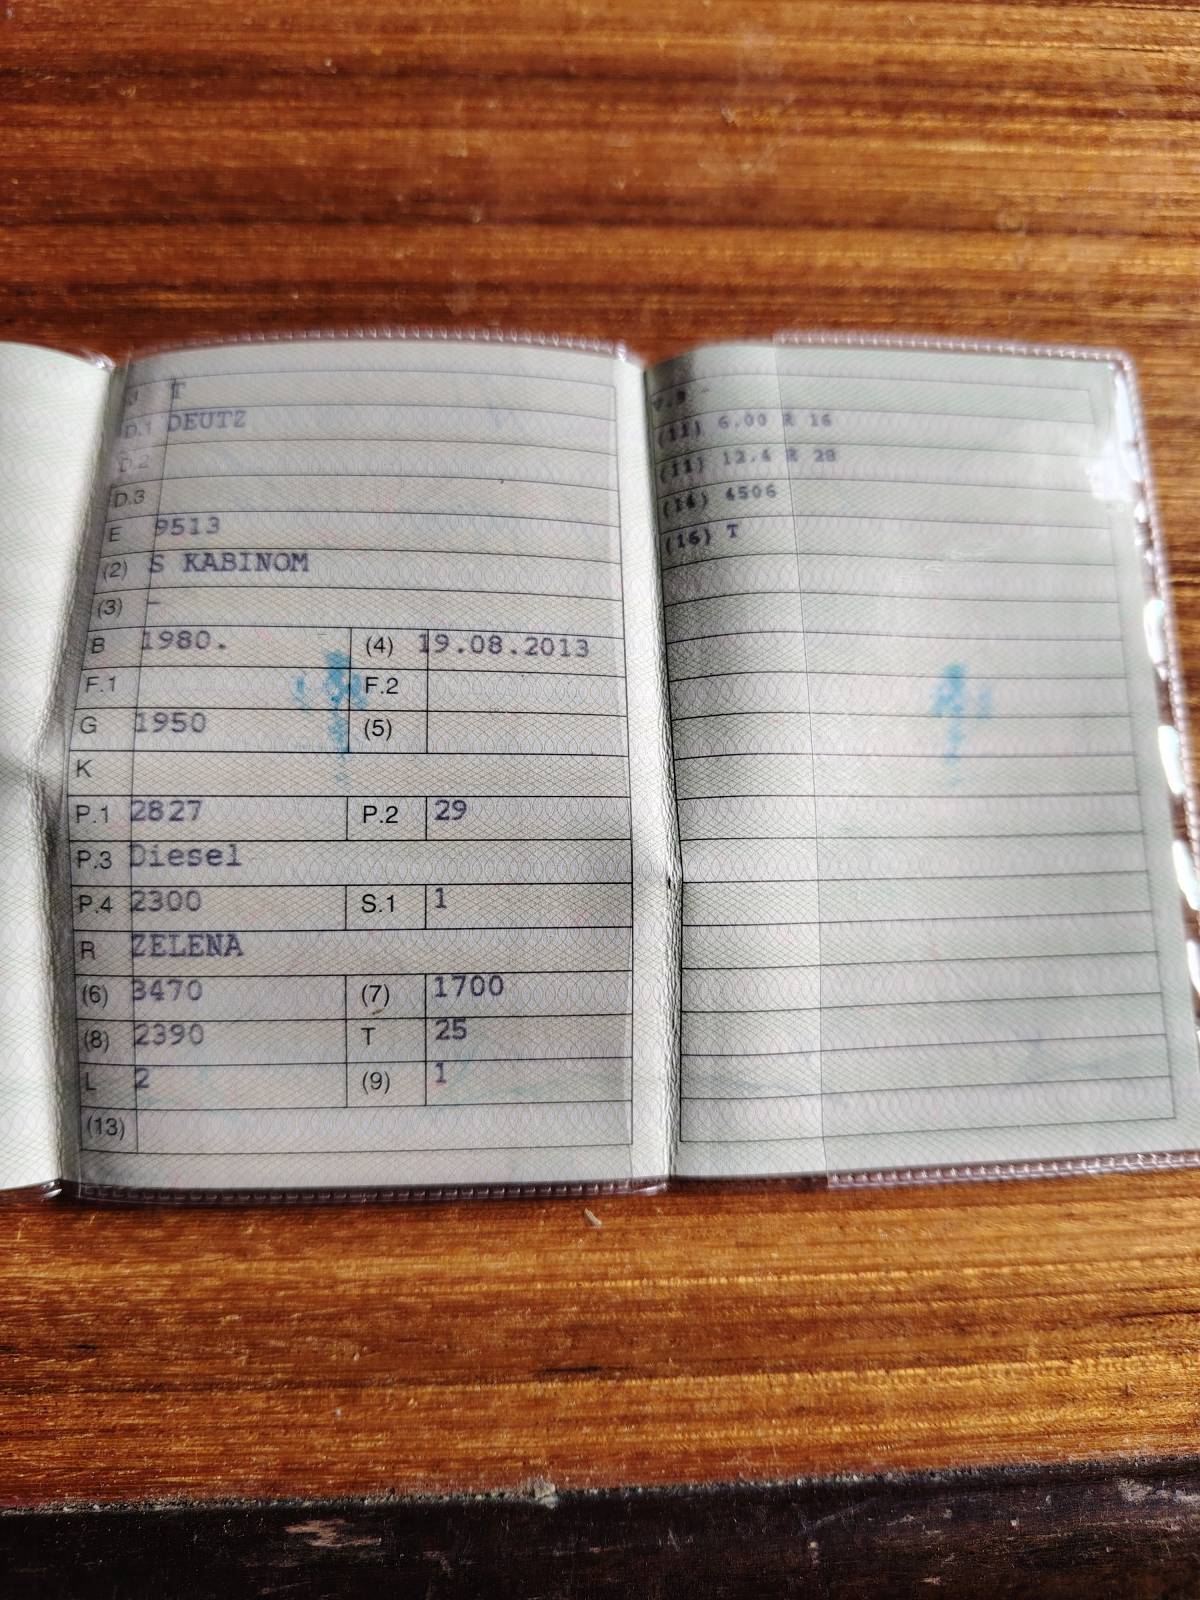 J T
D.1 DEUTZ
D.2
D.3
E 9513
(2) S KABINOM
(3) -
B 1980. (4) 19.08.2013
F.1 F.2
G 1950 (5)
K
P.1 2827 P.2 29
P.3 Diesel
P.4 2300 S.1 1
R ZELENA
(6) 3470 (7) 1700
(8) 2390 T 25
L 2 (9) 1
(13)
V.9 -
(11) 6.00 R 16
(11) 12.4 R 28
(14) 4506
(16) T